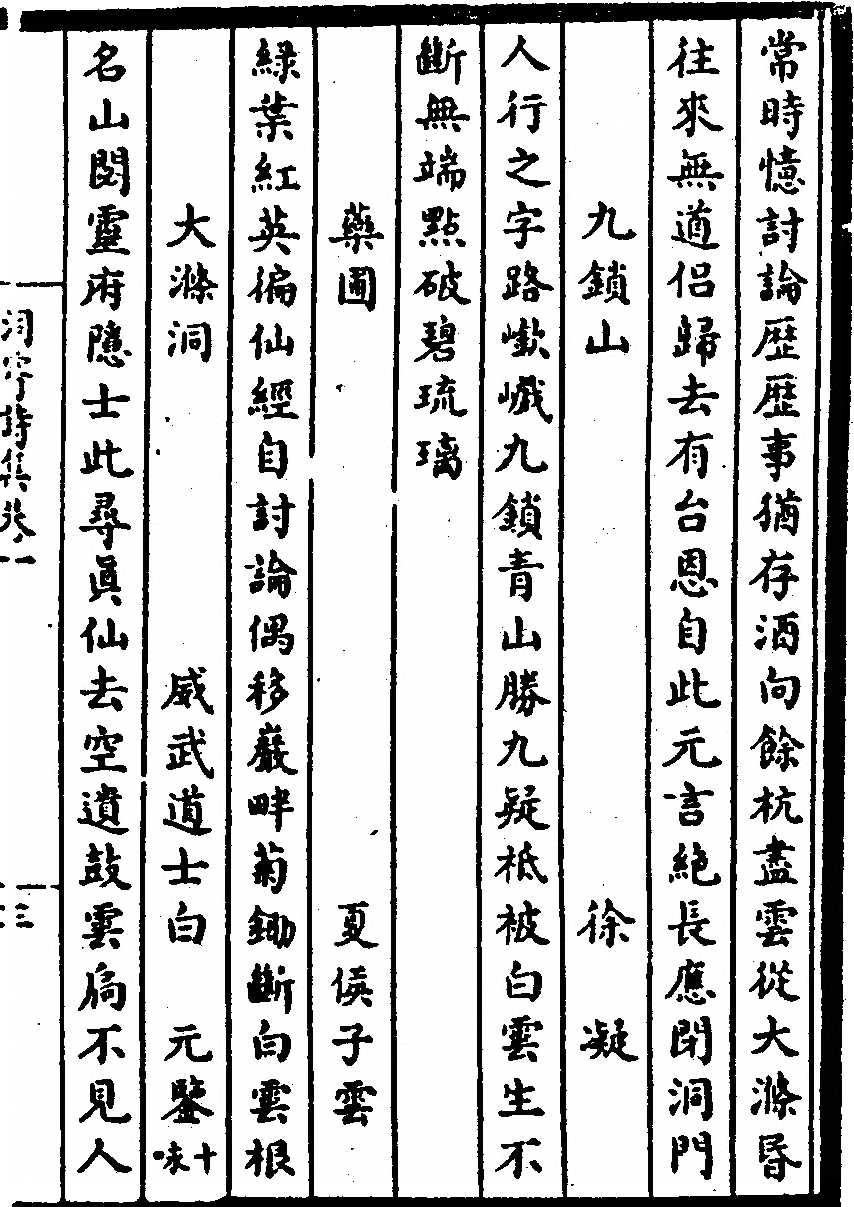 常時憶討論歷歷事猶存酒向餘杭盡雲從大滌昬
往來無道侶歸去有台恩自此元言絶長應閉洞門
九鎖山　徐　凝
人行之字路㠝巇九鎖青山勝九疑秪被白雲生不
斷無端點破碧琉璃
藥圃　夏侯子雲
綠葉紅英徧仙經自討論偶移巖畔菊鋤斷白雲根
大滌洞　威武道士白　元鑒十味
名山閟靈府隱士此尋眞仙去空遺鼓雲扃不見人
洞霄詩集卷一
三